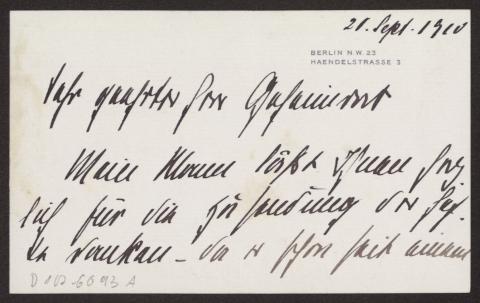 21. Sept. 1910
BERLIN N.W. 23
HAENDELSTRASSE 3
Sehr geehrter Herr Geheimrat
Mein Mann läßt Ihnen herz-
lich für die Zusendung der
danken - da er schon seit einem
D 102-6093 A